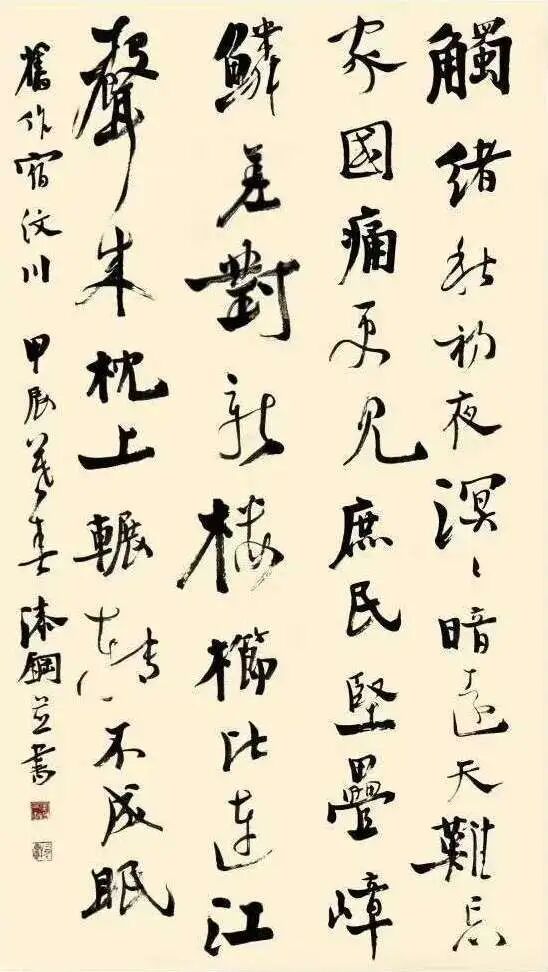 觸緒秋初夜溟〻暗遠天難忘
家國痛更見庶民堅疊嶂
鱗差對新樓櫛比連江
聲來枕上輾轉不成眠
舊作宿汶川 甲辰暮春 漆鋼並書